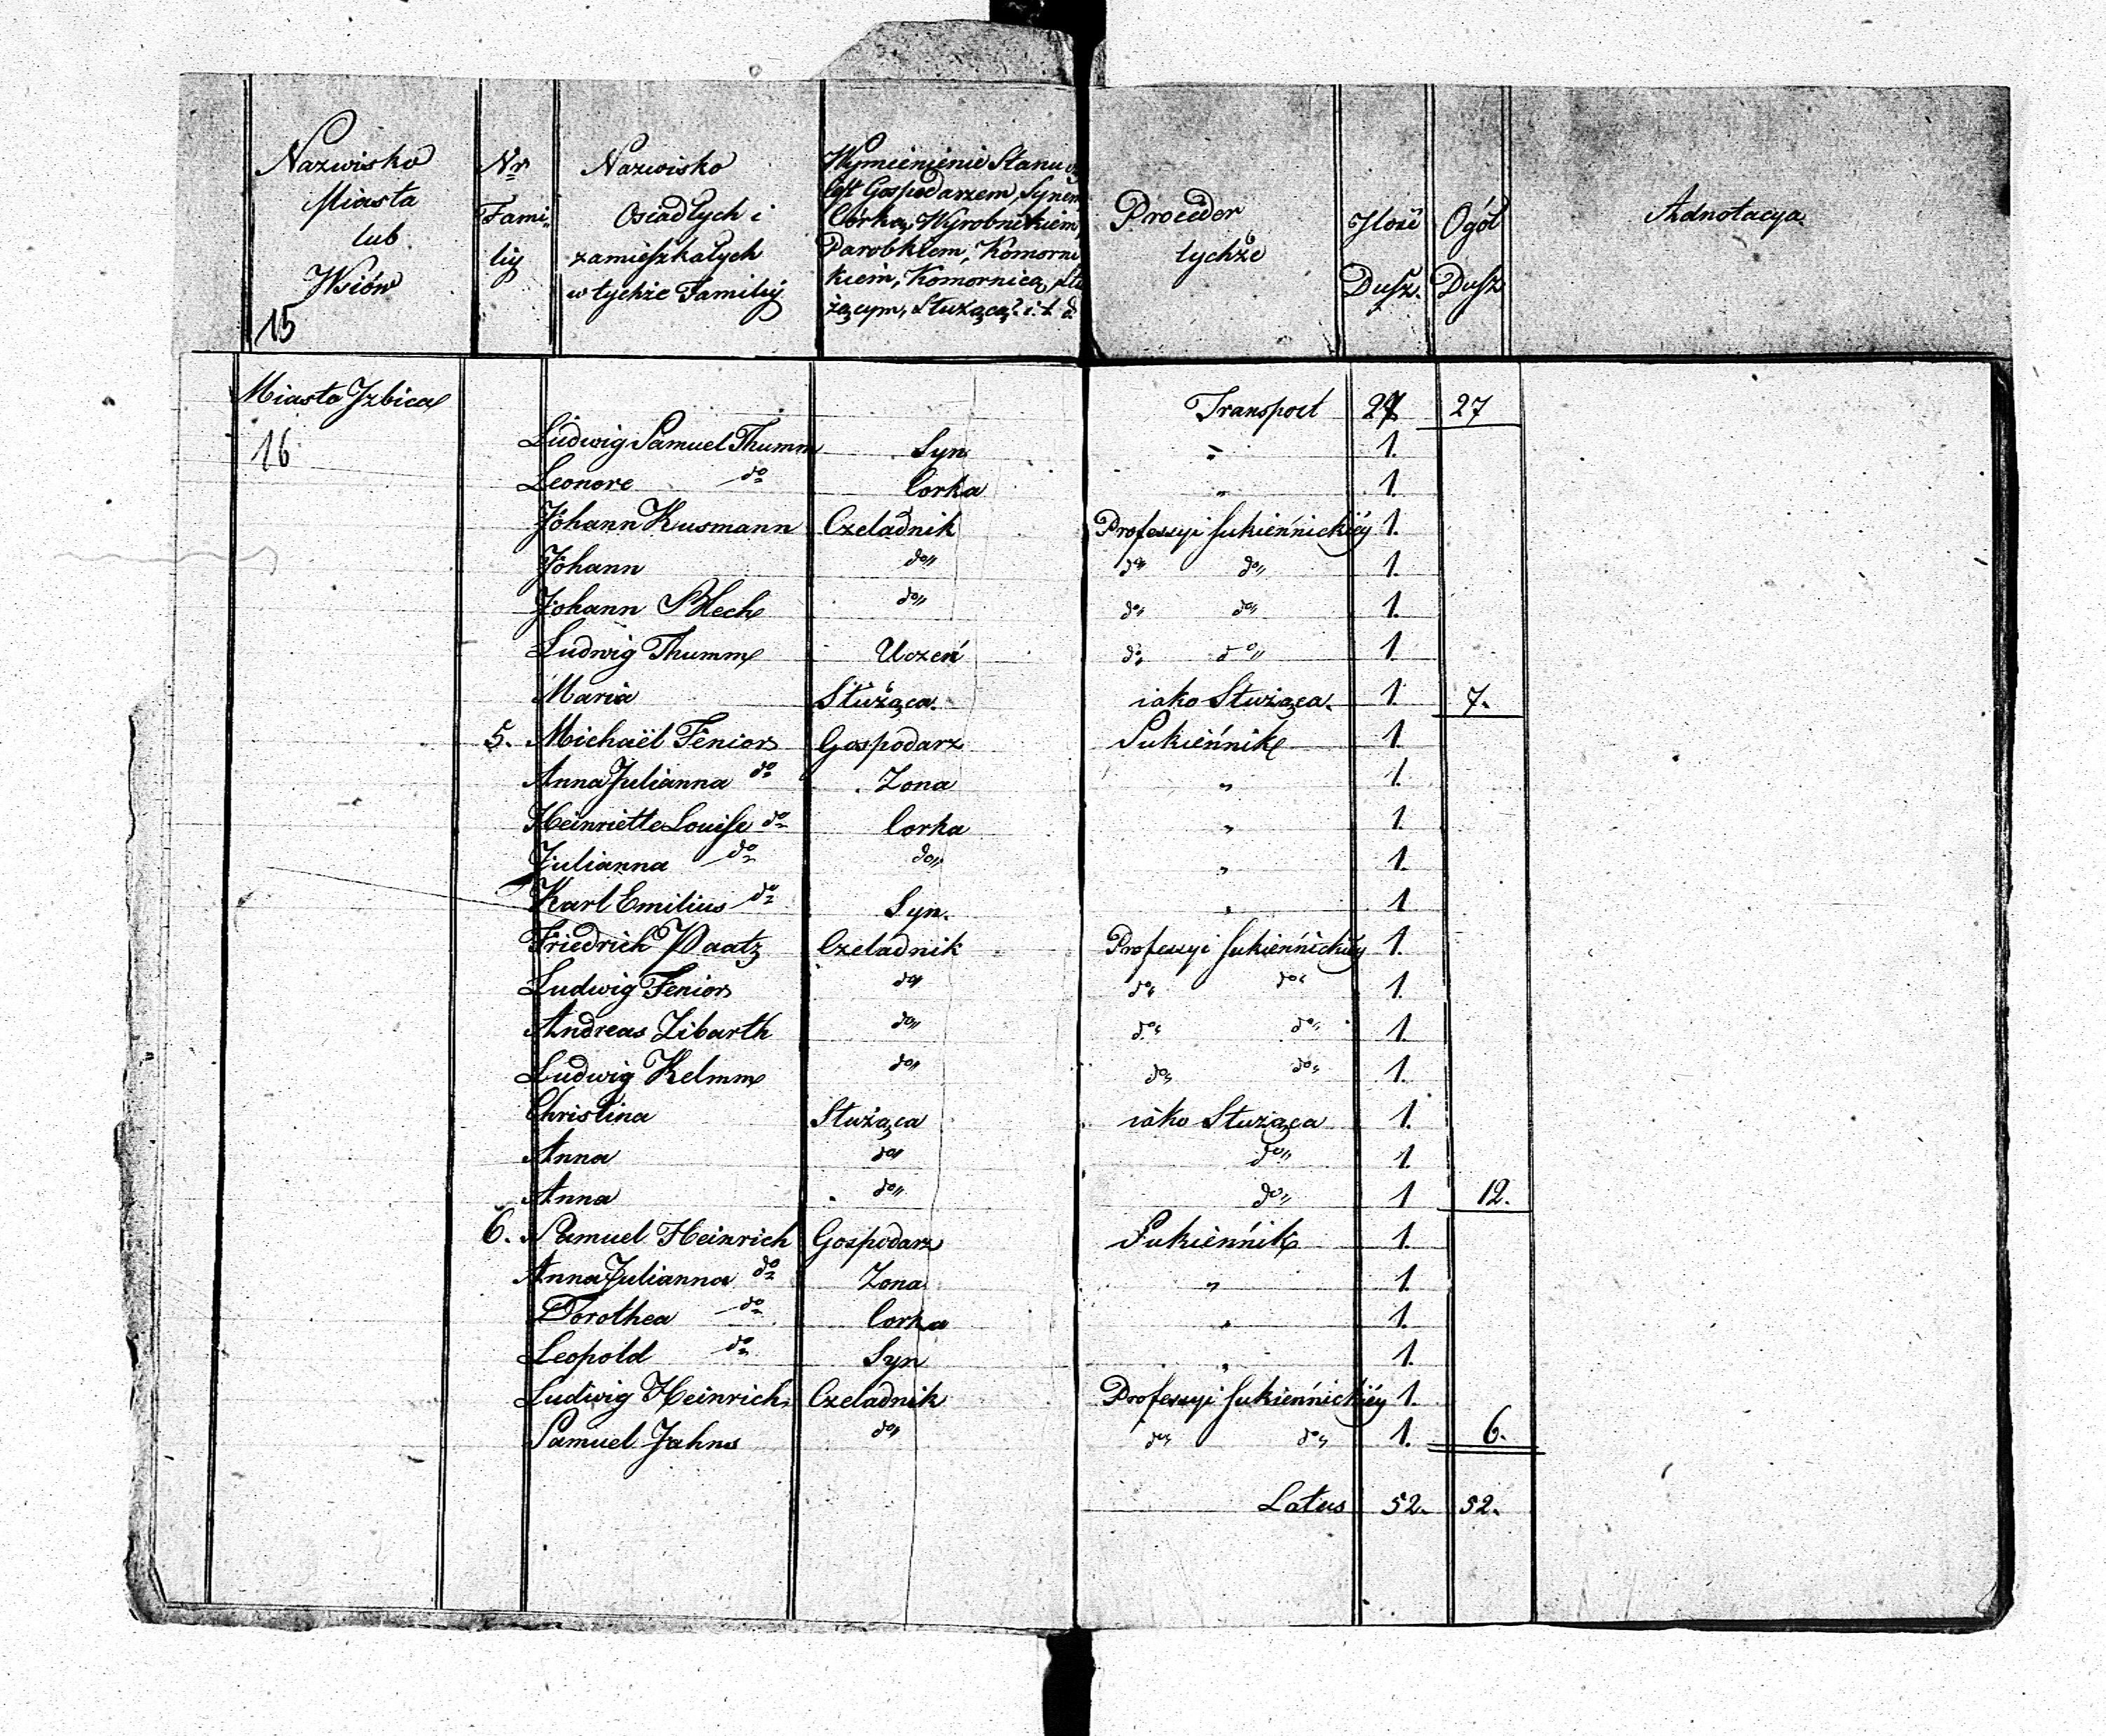 Nazwisko Miasta lub Wsiów
Nr Familiy
Nazwisko Osiadłych i zamieszkałych w tychże Familiy
Wymienienie Stanu Gospodarzem, Synem Córką, Wyrobnikiem, Parobkiem, Komorni kiem, Komornicą, Słu żącym, Służącą i. t. d.
Proceder tychże
Jlość Dusz.
Ogół Dusz
Adnotacya
15
Miasto Jzbica Transport 27 27
16
Ludwig Samuel Thumm Syn " 1.
Leonore do Corka " 1.
Johann Kusmann Czeladnik Professyi sukieńnickiéy 1.
Johann do" do" do" 1.
Johann do" do" do" 1.
Ludwig Thumm Uczeń do" do" 1.
Maria Służąca. iako Służąca. 1. 7.
5. Michaël Fenior Gospodarz Sukieńnik 1.
Anna Julianna do Zona " 1.
Heinriette Louise do Corka " 1.
Julianna do do" " 1.
Karl Emilius do Syn. " 1
Friedrich Paatz Czeladnik Professyi sukieńnickiéy 1.
Ludwig Fenior do" do" do" 1.
Andreas Zibarth do" do" do" 1.
Ludwig Kelmm do" do" do" 1.
Christina Służąca iako Służąca 1.
Anna do" do" 1.
Anna do" do" 1 12.
6. Samuel Heinrich Gospodarz Sukieńnik 1.
Anna Julianna do Zona " 1.
Dorothea do Corka " 1.
Leopold do Syn " 1.
Ludwig Heinrich Czeladnik Professyi sukieńnickiéy 1.
Samuel Jahns do" do" do" 1. 6.
Latus 52. 52.